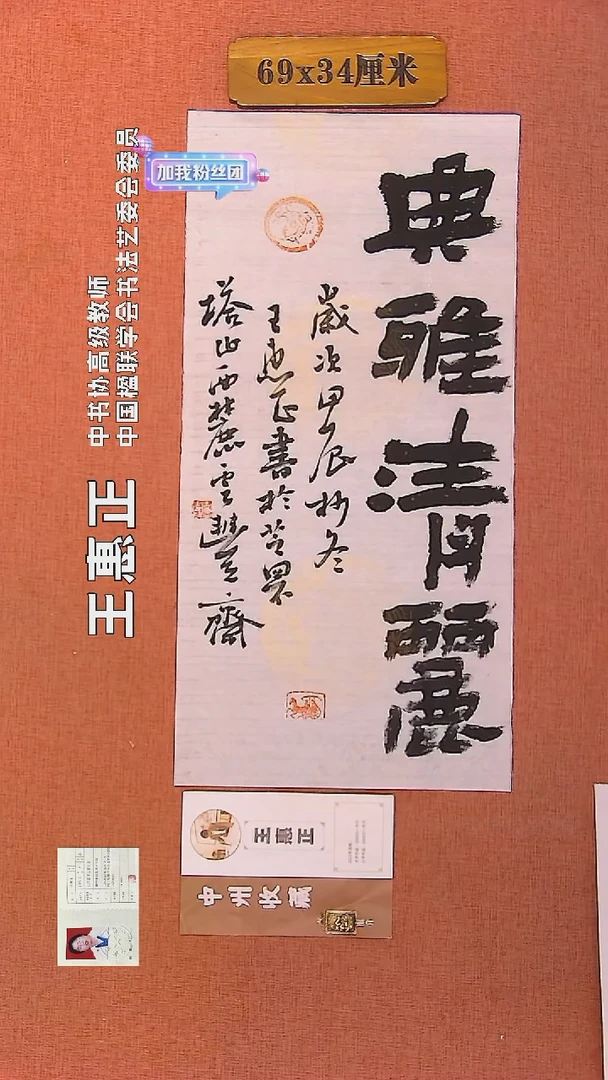 69x34厘米
加我粉丝团
典雅清麗
歲次甲辰杪冬
王惠正書於
塔山西麓雲
齋
中国楹联学会书法艺委会委员
中书协高级教师
王惠正
王惠正
中州收藏